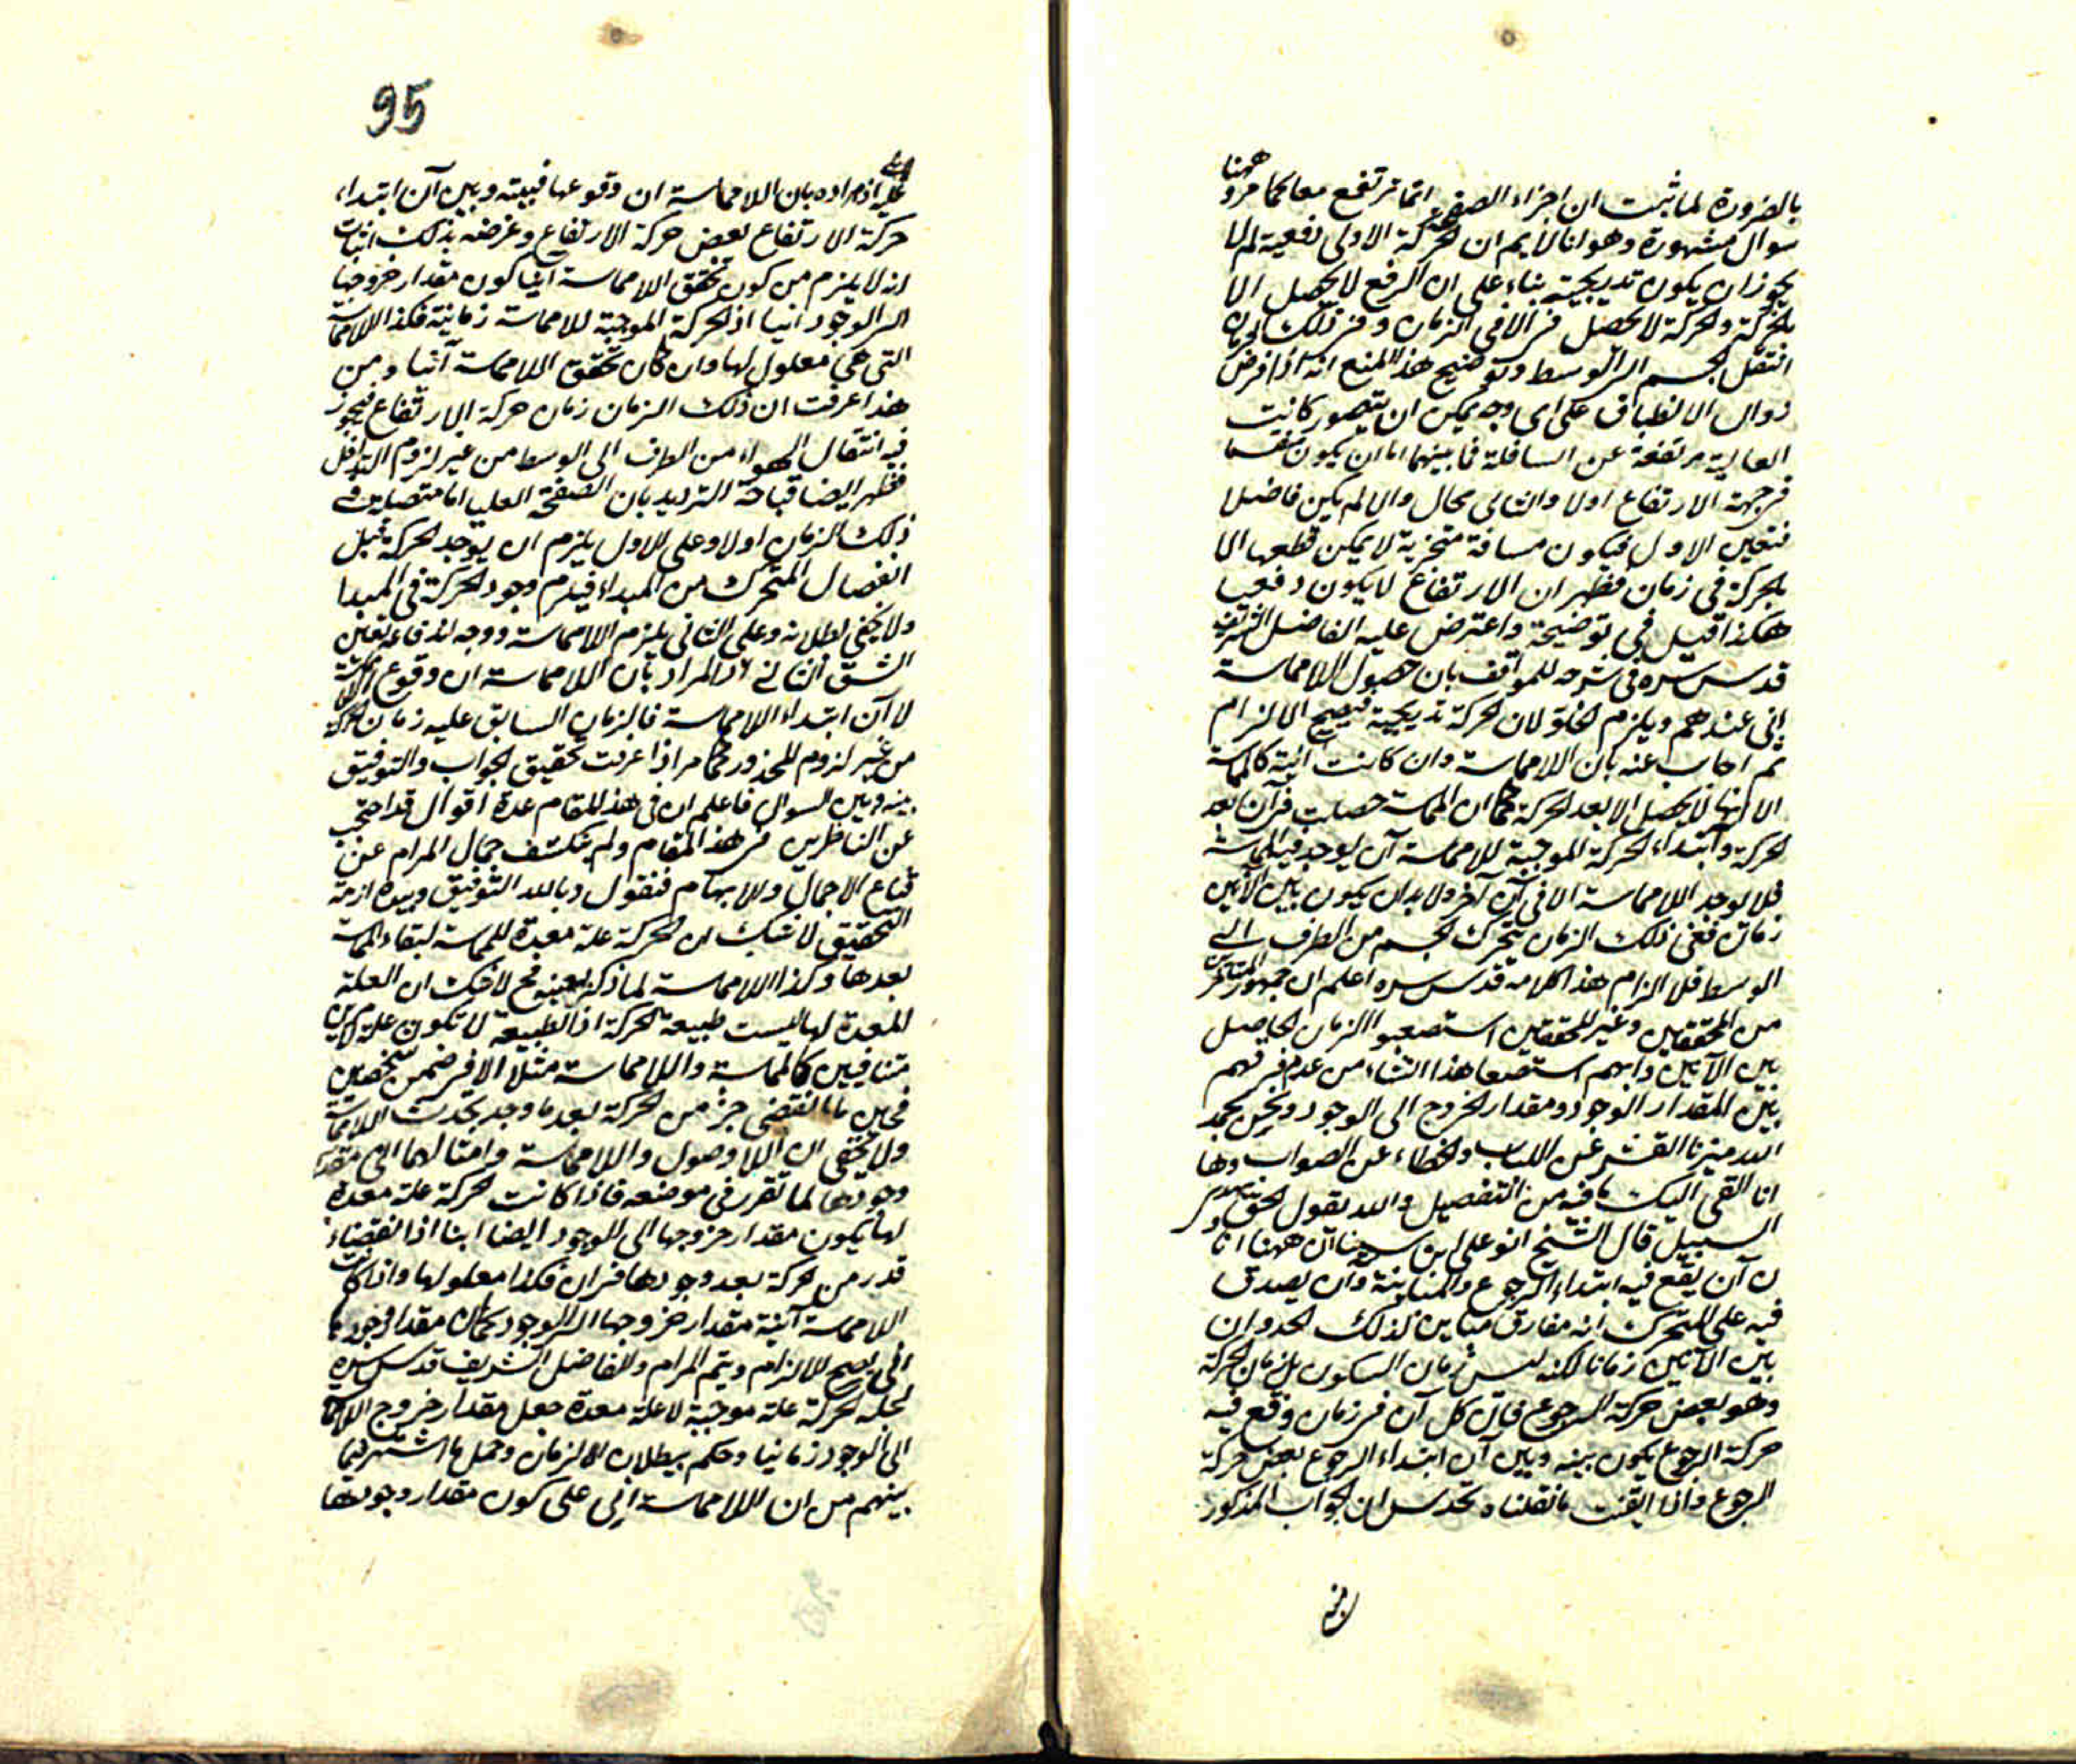 بالضرورة لما ثبت ان اجزاء الصفحة انما ترتفع معا كما مر وههنا
سوال مشهورة وهو انا لا نم ان الحركة الاولى دفعية لم لا
يجوز ان يكون تدريجية بناء على ان الرفع لا يحصل الا
بالحركة والحركة لا تحصل الا فى الزمان وفى ذلك الزمان
انتقل الجسم الى الوسط وتوضيح هذا المنع انه اذا فرض
زوال الانطباق على اى وجه يمكن ان يتصور كانت
العالية مرتفعة عن السافلة فما بينهما اما ان يكون منقسما
فى جهة الارتفاع اولا والثانى محال والا لم يكن فاصلا
فتعين الاول فيكون مسافة متجزية لا يمكن قطعها الا
بالحركة فى زمان فظهر ان الارتفاع لا يكون دفعيا
هكذا قيل فى توضيحه واعترض عليه الفاضل الشريف
قدس سره فى شرحه للمواقف بان حصول اللامماسة
انى عندهم ويلزم الخلو لان الحركة تدريجية فيصح الالزام
ثم اجاب عنه بان اللامماسة وان كانت آنية كالمماسة
الا انها لا يحصل الا بعد الحركة كما ان المماسة حصلت فى آن بعد
الحركة وابتداء الحركة الموجبة للامماسة آن يوجد فيه المماسة
فلا يوجد اللامماسة الا فى آن آخر ولا بد ان يكون بين الآنين
زمان ففى ذلك الزمان يتحرك الجسم من الطرف الى
الوسط فلا الزام هذا كلامه قدس سره اعلم ان جمهور المتاخرين
من المحققين وغير المحققين استصعبوا الزمان الحاصل
بين الآنين وانهم استصعبا هذا انشاء من عدم فرقهم
بين المقدار الوجود ومقدار الخروج الى الوجود ونحن بحمد
الله ميزنا القشر عن اللباب والخطاء عن الصواب وها
انا القى اليك ما فيه من التفصيل والله يقول الحق ويهدى
السبيل قال الشيخ ابو على بن سينا ان ههنا انا
ن آن يقع فيه ابتداء الرجوع والمباينة وان يصدق
فيه على المتحرك انه مفارق مباين لذلك الحد وان
بين الآنين زمانا لكنه ليس زمان السكون بل زمان الحركة
وهو بعض حركة الرجوع فان كل آن فى زمان وقع فيه
حركة الرجوع يكون بينه وبين آن ابتداء الرجوع بعض حركة
الرجوع واذا ايقنت ما نقلناه تحدس ان الجواب المذكور
95
عليه اذ مراده بان اللامماسة ان وقوعها فبينه وبين آن ابتداء
حركة الارتفاع بعض حركة الارتفاع وغرضه بذلك اثبات
انه لا يلزم من كون تحقق اللامماسة آنيا كون مقدار خروجها
الى الوجود انيا اذ الحركة الموجبة للامماسة زمانية فكذا اللامماسة
التى هى معلول لها وان كان تحقق اللامماسة آنيا ومن
هذا عرفت ان ذلك الزمان زمان حركة الارتفاع فيجوز
فيه انتقال الهواء من الطرف الى الوسط من غير لزوم التداخل
فظهر ايضا قباحة الترديد بان الصفحة العليا اما متصلة فى
ذلك الزمان اولا وعلى الاول يلزم ان يوجد الحركة قبل
انفصال المتحرك من المبداء فيلزم وجود الحركة فى المبدا
ولا يخفى بطلانه وعلى الثانى يلزم اللامماسة ووجه اندفاعه تعين
الشق الثانى اذ المراد بان اللامماسة ان وقوع اللامماسة
لا آن ابتداء اللامماسة فالزمان السابق عليه زمان الحركة
من غير لزوم المحذور كما مر اذا عرفت تحقيق الجواب والتوفيق
بينه وبين السوال فاعلم ان فى هذا المقام عدة اقوال قد احتجب
عن الناظرين فى هذا المقام ولم ينكشف جمال المرام عن
قناع الاجمال والابهام فنقول وبالله التوفيق وبيده ازمة
التحقيق لا شك ان الحركة علة معدة للمماسة لبقاء المماسة
بعدها وكذا اللامماسة لما ذكر بعينه فح لا شك ان العلة
المعدة لها ليست طبيعة الحركة اذ الطبيعة لا تكون علة لامرين
متنافيين كالمماسة واللامماسة مثلا الا فى ضمن شخصين
فحين ما انقضى جزء من الحركة بعد ما وجد يحدث اللامماسة
ولا يخفى ان اللاوصول واللامماسة وامثالهما انى مقدار
وجودها لما تقرر فى موضعه فاذا كانت الحركة علة معدة
لها يكون مقدار خروجها الى الوجود ايضا انيا اذ انقضاء
قدر من الحركة بعد وجودها فى ان فكذا معلولها واذا كانت
اللامماسة آنية مقدار خروجها الى الوجود كما ان مقدار وجودها
انى يصح الالزام ويتم المرام والفاضل الشريف قدس سره
لجعله الحركة علة موجبة لا علة معدة جعل مقدار خروج اللامماسة
الى الوجود زمانيا وحكم ببطلان الالزام وحمل ما اشتهر فيما
بينهم من ان اللامماسة انى على كون مقدار وجودها